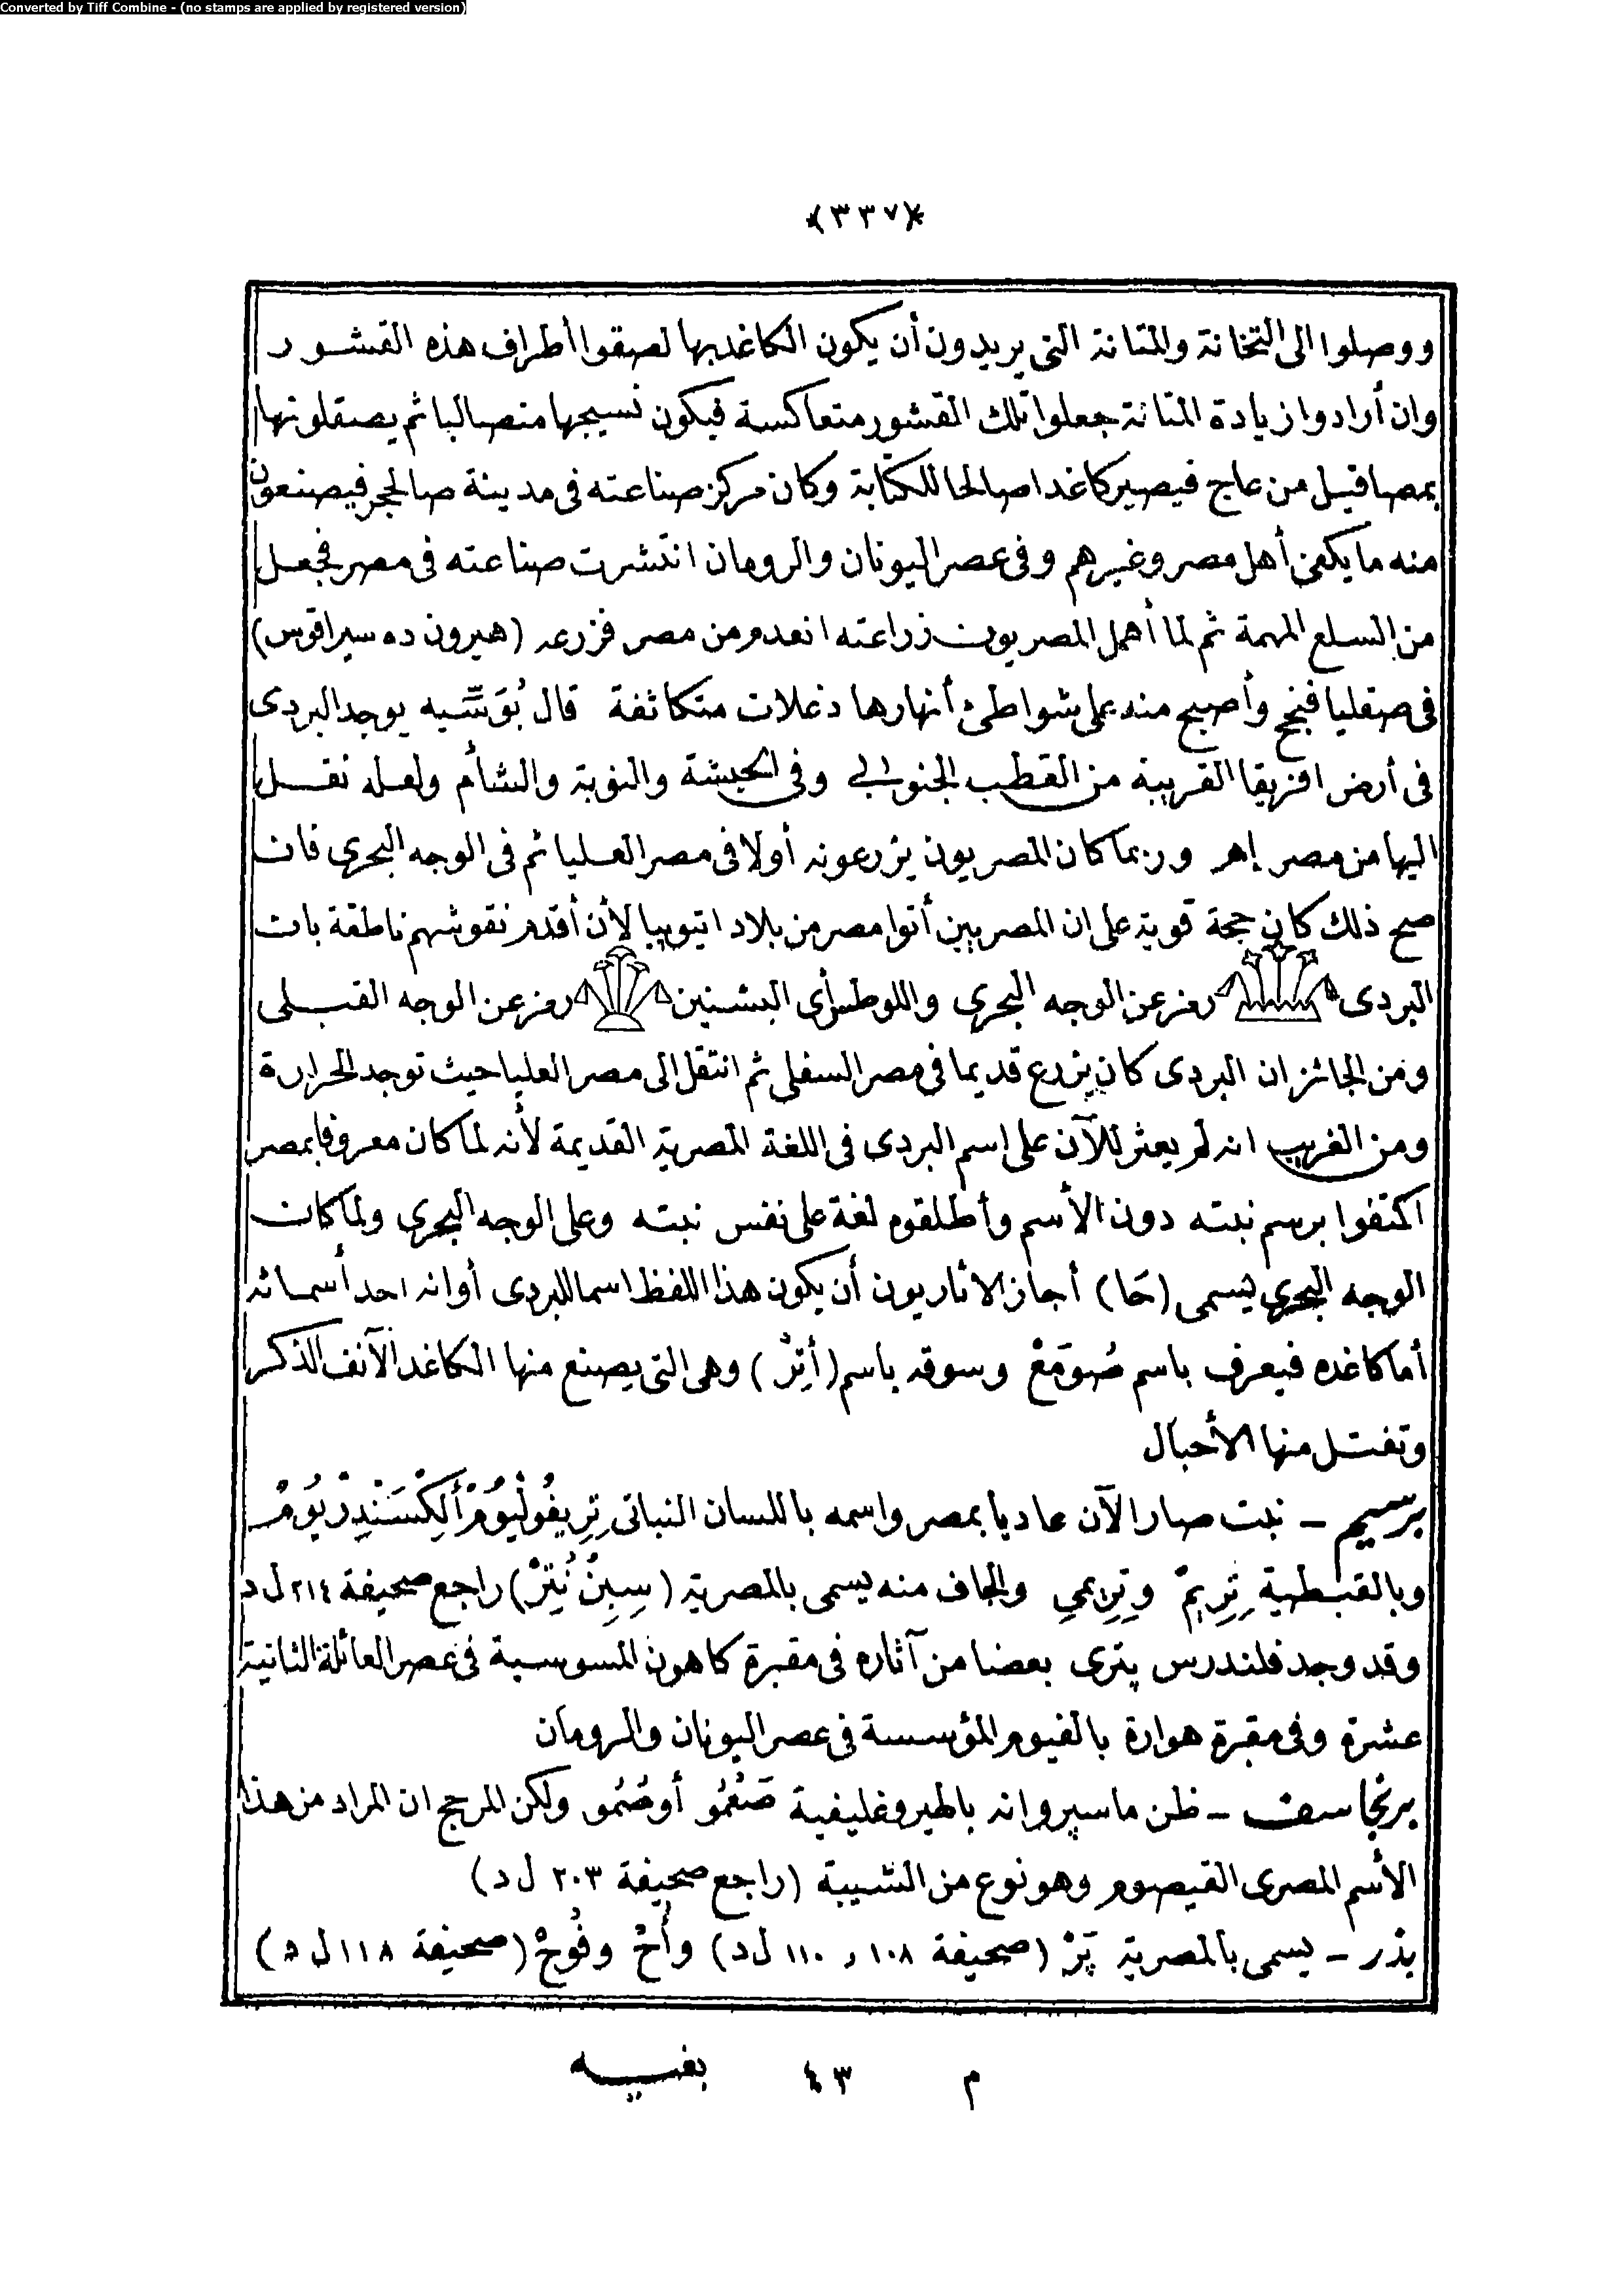 Converted by Tiff Combine - (no stamps are applied by registered version)
﴿٣٣٧﴾
ووصلوا الى التخانة والمتانة التى يريدون أن يكون الكاغد بها لصقوا أطراف هذه القشور
وان أرادوا زيادة المتانة جعلوا تلك القشور متعاكسة فيكون نسيجها منصالبا ثم يصقلونها
بمصاقيل من عاج فيصير كاغدا صالحا للكتابة وكان مركز صناعته فى مدينة صا الحجر فيصنعون
منه ما يكفى أهل مصر وغيرهم وفى عصر اليونان والرومان انتشرت صناعته فى مصر فجعل
من السلع المهمة ثم لما أهمل المصريون زراعته انعدم من مصر فزرعه (هيرون ده سيراقوس)
فى صقليا فنجح وأصبح منه على شواطئ أنهارها دغلات متكاثفة قال بُوَسِّيه يوجد البردى
فى أرض افريقا القريبة من القطب الجنوبى وفى الحبشة والنوبة والشأم ولعله نقل
اليها من مصر إهر وربما كان المصريون يزرعونه أولا فى مصر العليا ثم فى الوجه البحرى فان
صح ذلك كان حجة قوية على ان المصريين أتوا مصر من بلاد اتيوبيا لأن أقدم نقوشهم ناطقة بان
البردى رمز عن الوجه البحرى واللوطس أى البشنين رمز عن الوجه القبلى
ومن الجائز ان البردى كان يزرع قديما فى مصر السفلى ثم انتقل الى مصر العليا حيث توجد الحرارة
ومن الغريب انه لم يعثر للآن على اسم البردى فى اللغة المصرية القديمة لأنه لما كان معروفا بمصر
اكتفوا برسم نبته دون الأسم وأطلقوه لغة على نفس نبته وعلى الوجه البحرى ولما كان
الوجه البحرى يسمى (حَا) أجاز الاثاريون أن يكون هذا اللفظ اسما للبردى أو انه احد أسمائه
أما كاغده فيعرف باسم صُومَعْ وسوقه باسم (أتِرْ) وهى التى يصنع منها الكاغد الآنف الذكر
وتفتل منها الأحبال
برسيم - نبت صار الآن عاديا بمصر واسمه باللسان النباتى تِرِيفُولْيُومْ أَلِكْسَنْدِرْيُومْ
وبالقبطية تِرِيمْ وتِرِيمِى والجاف منه يسمى بالمصرية (سِبِنْ نُتِرْ) راجع صحيفة ٢١٤ ل د
وقد وجد فلندرس پترى بعضا من آثاره فى مقبرة كاهون المسوسبة فى عصر العائلة الثانية
عشرة وفى مقبرة هوارة بالفيوم المؤسسة فى عصر اليونان والرومان
برنجاسف - ظن ماسپرو انه بالهيروغليفية صَعْمُو أو صُمُو ولكن المرجح ان المراد من هذا
الأسم المصرى القيصوم وهو نوع من الشيبة (راجع صحيفة ٢٠٣ ل د)
بذر - يسمى بالمصرية پَرْ (صحيفة ١٠٨ و ١١٠ ل د) وأُخْ وفُوخْ (صحيفة ١١٨ ل د)
م ٤٣ بغسيه